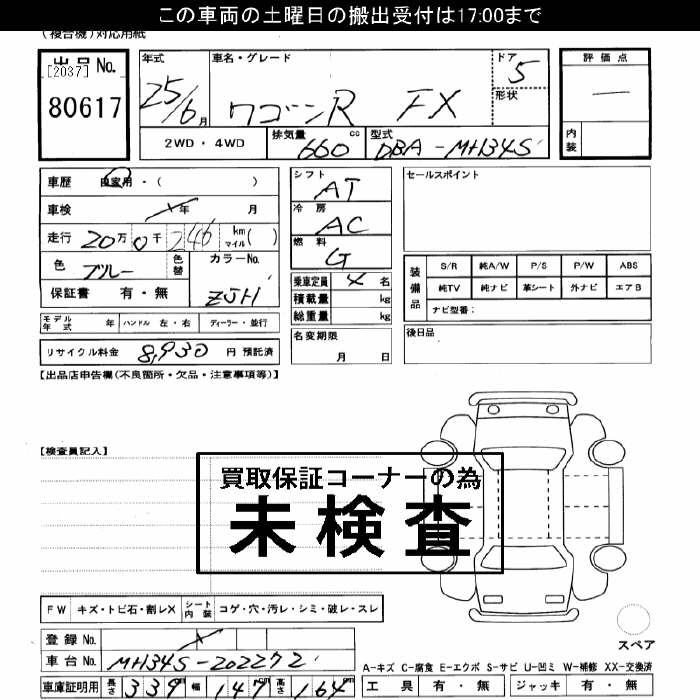 この車両の土曜日の搬出受付は17:00まで
(複合機)対応用紙
出品No.
[2037]
80617
年式 車名・グレード ドア
25/6月 ワゴンR FX 5
形状
2WD・4WD 排気量 660 cc 型式 DBA-MH34S
評価点
—
内装
車歴 自家用・( )
車検 年 月
走行 20万0千246 km マイル( )
色 ブルー 色替 カラーNo. ZJH
保証書 有・無
モデル年式 年 ハンドル 左・右 ディーラー・並行
リサイクル料金 8,930 円 預託済
シフト AT
冷房 AC
燃料 G
乗車定員 4 名
積載量 kg
総重量 kg
名変期限
月 日
セールスポイント
装備品
S/R 純A/W P/S P/W ABS
純TV 純ナビ 革シート 外ナビ エアB
ナビ型番:
後日品
【出品店申告欄(不良箇所・欠品・注意事項等)】
【検査員記入】
買取保証コーナーの為
未検査
FW キズ・トビ石・割レX シート内装 コゲ・穴・汚レ・シミ・破レ・スレ
スペア
登録No.
車台No. MH34S-202272
車庫証明用 長さ 339cm 幅 147cm 高さ 164cm
A-キズ C-腐食 E-エクボ S-サビ U-凹ミ W-補修 XX-交換済
工具 有・無 ジャッキ 有・無